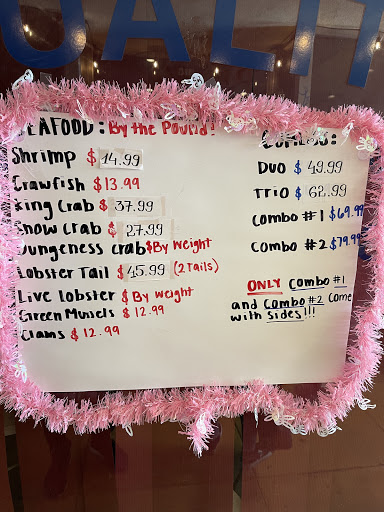 UALIT
SEAFOOD: By the Pound!
Shrimp $ 14.99
Crawfish $13.99
King Crab $ 37.99
Snow Crab $ 27.99
Dungeness crab $By Weight
Lobster Tail $45.99 (2 Tails)
Live lobster $ By weight
Green Mussels $ 12.99
Clams $ 12.99
COMBOS:
Duo $ 49.99
Trio $ 62.99
Combo #1 $69.99
Combo #2 $79.99
ONLY Combo #1
and Combo #2 Come
with sides!!!